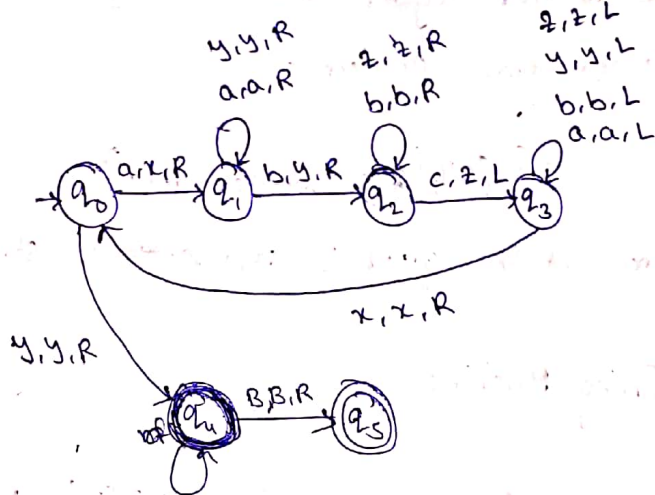 y, y, R
a, a, R
z, z, R
b, b, R
z, z, L
y, y, L
b, b, L
a, a, L
q0
a, x, R
q1
b, y, R
q2
c, z, L
q3
x, x, R
y, y, R
q4
B, B, R
q5